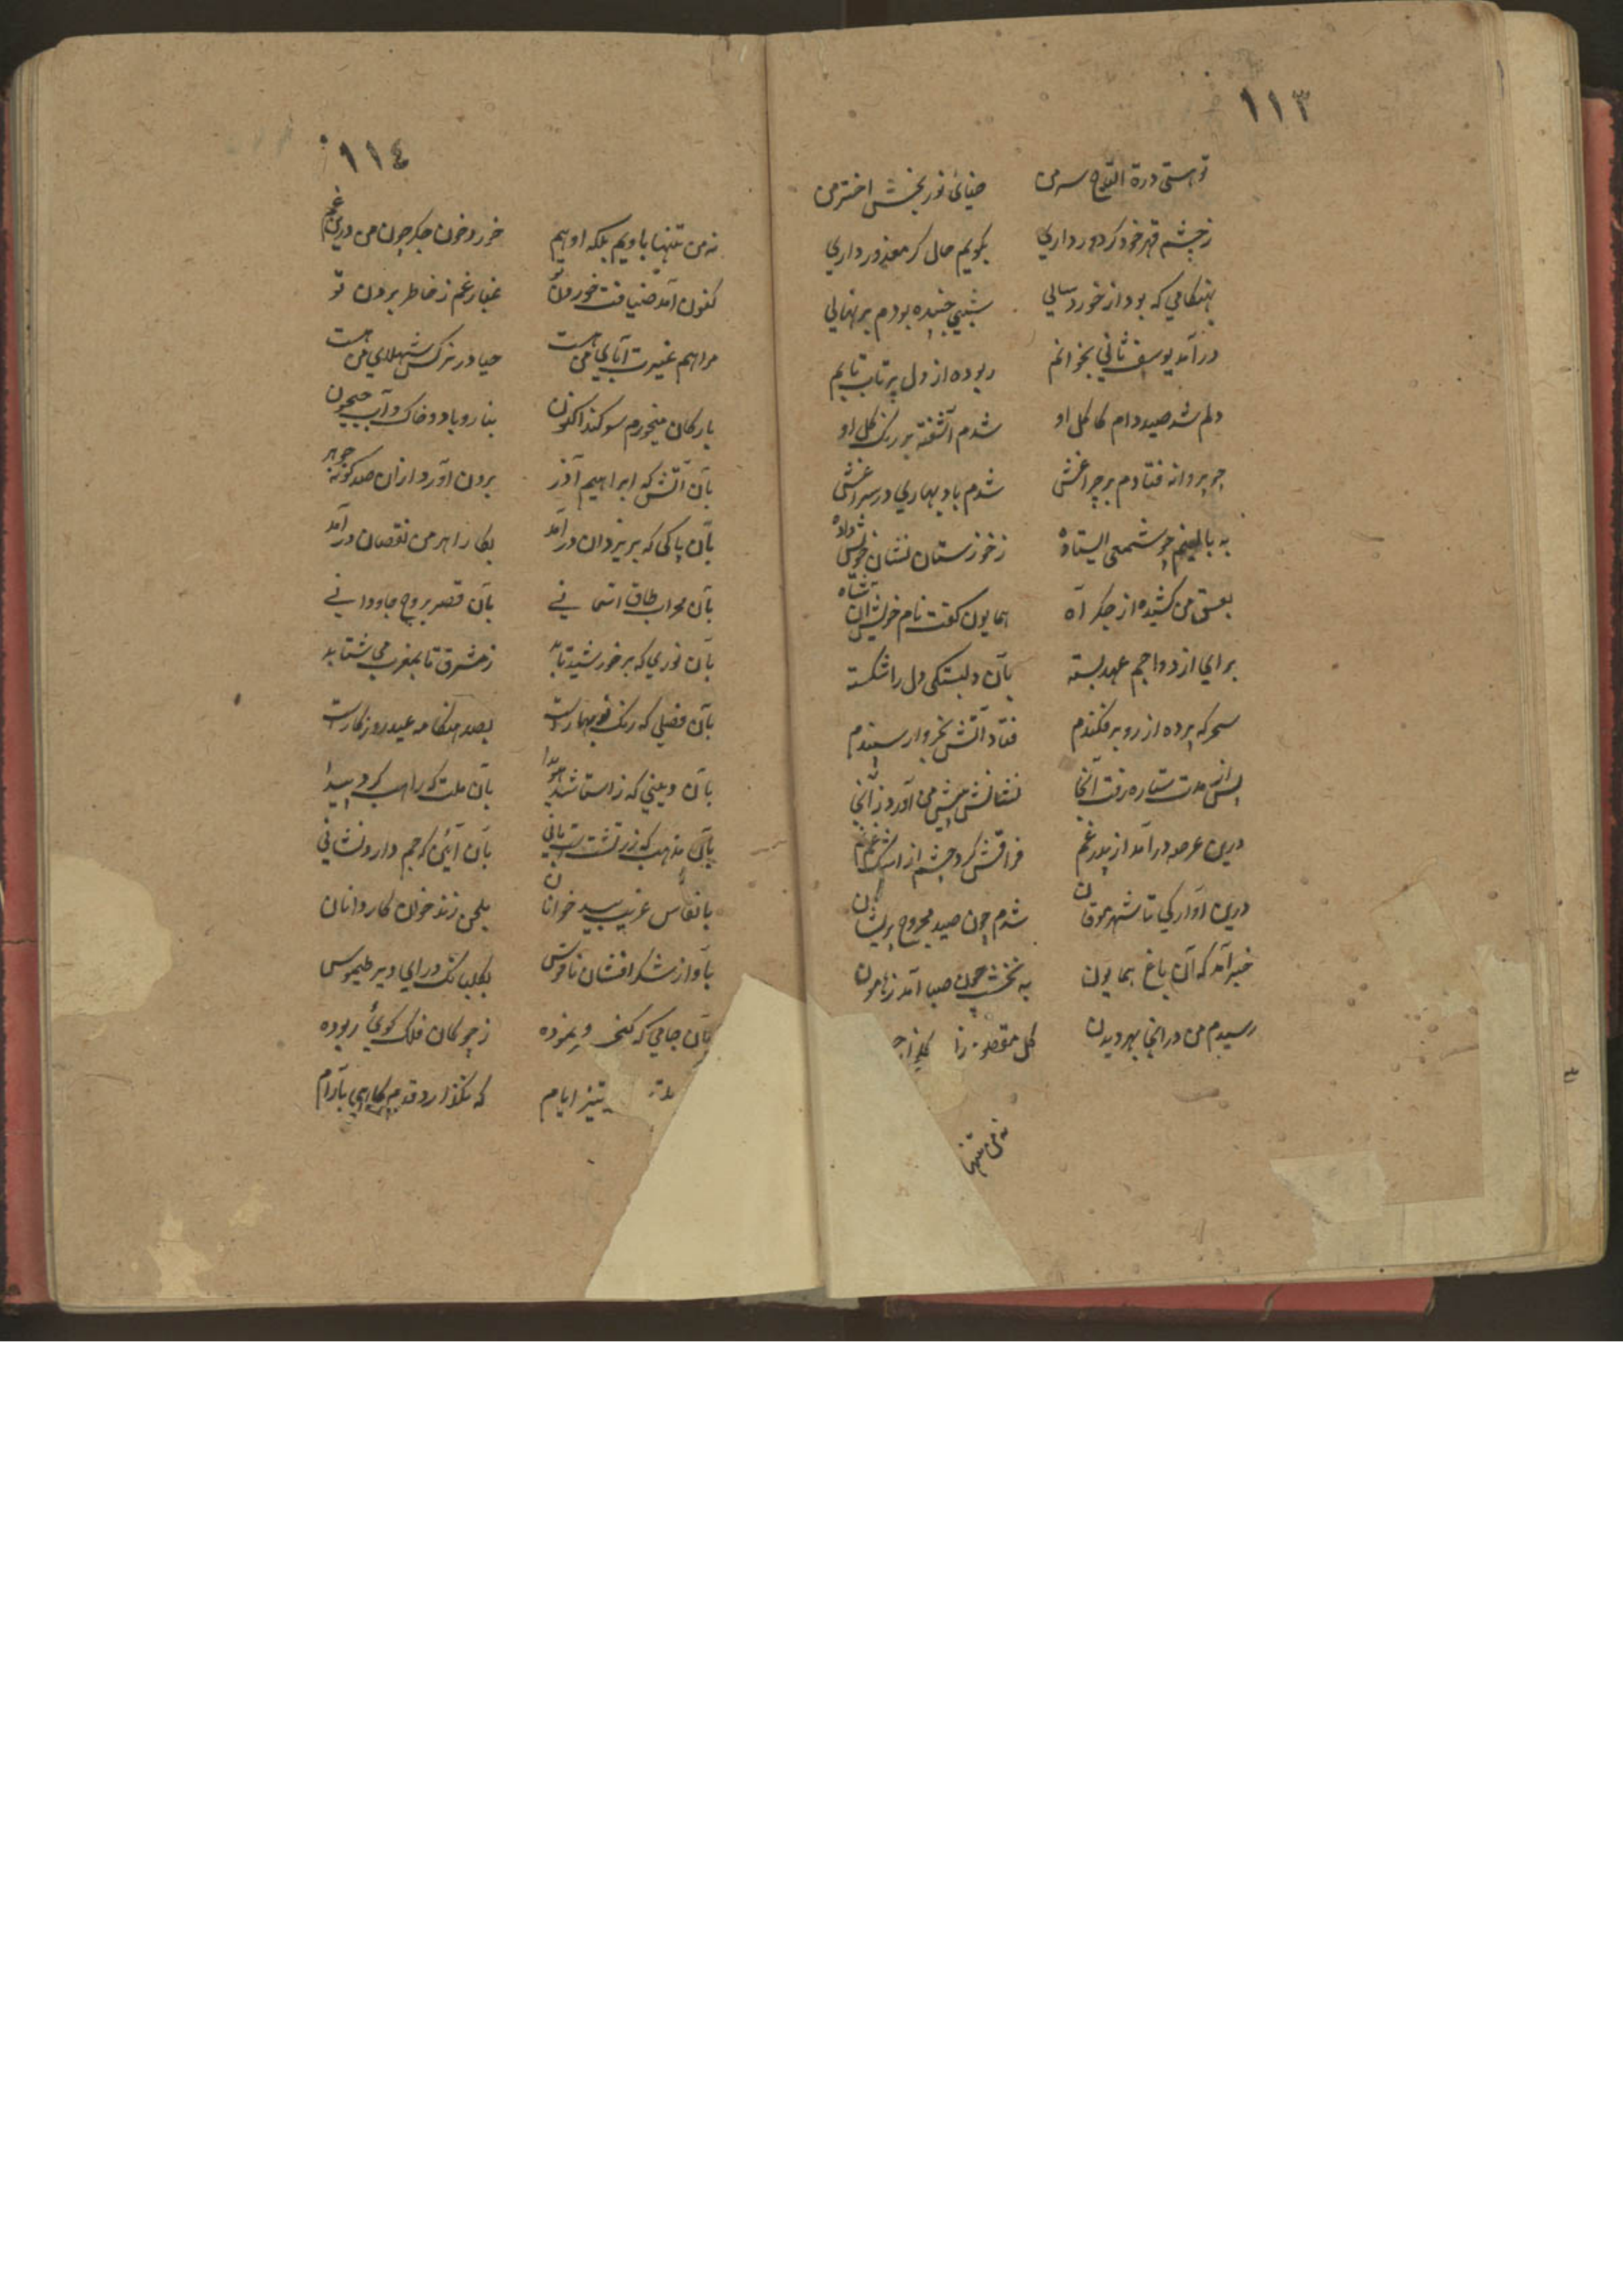 ١١٣
تو هستی درة التاج سر من ضیائ نور بخش اختر من
ز چشم قهر خود کر دور داری بکویم حال کر معذور داری
بهنکامی که بود از خورد سالی شبی خفته بودم بر نهالی
در آمد یوسف ثانی بخوابم ربوده از دل پر تاب تابم
دلم شد صید دام کاکل او شدم آشفته بر رنک کل او
چو پروانه فتادم بر چراغش شدم باد بهاری در سراغش
به بالینم چو شمعی ایستاده ز خوزستان نشان خویش داده
بعشق من کشیده از جکر آه همایون کفت نام خویش آن شاه
برای ازدواجم عهد بسته بآن دلبستکی دل را شکسته
سحر که پرده از رو بر فکندم فتاد آتش بخروار سپندم
پس از مدت ستاره رفت آنجا نشانش پیش من آورد ز آنجا
درین عرصه در آمد از پدر غم فراقش کرد چشم از اشک
درین آوارکی تا شهر موقان شدم چون صید مجروح پریشان
خبر آمد که آن باغ همایون به نخشب چون صبا آمد ز هامون
رسیدم من در انجا بهر دیدن کل مقصود را
نه من تنها
١١٤
نه من تنها باویم بلکه او هم خورد خون جکر چون من درین غم
کنون آمد ضیافت خوردن تو غبار غم ز خاطر بردن تو
مرا هم غیرت آبای من هست حیا در نرکس شهلای من هست
بارکان میخورم سوکند اکنون بنار و باد و خاک و آب جیحون
بآن آتش که ابراهیم آذر برون آورد ازان صد کونه جوهر
بآن پاکی که بر یزدان در آمد بکار اهرمن نقصان در آمد
بآن محراب طاق آسمانی بآن قصر بروج جاودانی
بآن نوری که بر خورشید تابد ز مشرق تا بمغرب می شتابد
بآن فضلی که رنک نو بهارست بصد هنکامه عید روزکارست
بآن دینی که ز استا شد هویدا بآن ملت که راهب کرد پیدا
بآن مذهب که زرتشت بآن آئین که جم دارد نشانی
بانفاس غریب سبد خوانان بلحن زند خوان کاردانان
بآواز شکر افشان ناقوس بکلبانک درای دیر طیموس
بآن جامی که کیخسرو نموده ز چوکان فلک کوئ ربوده
تیز ایام که نکذارد قدم کاهی بآرام